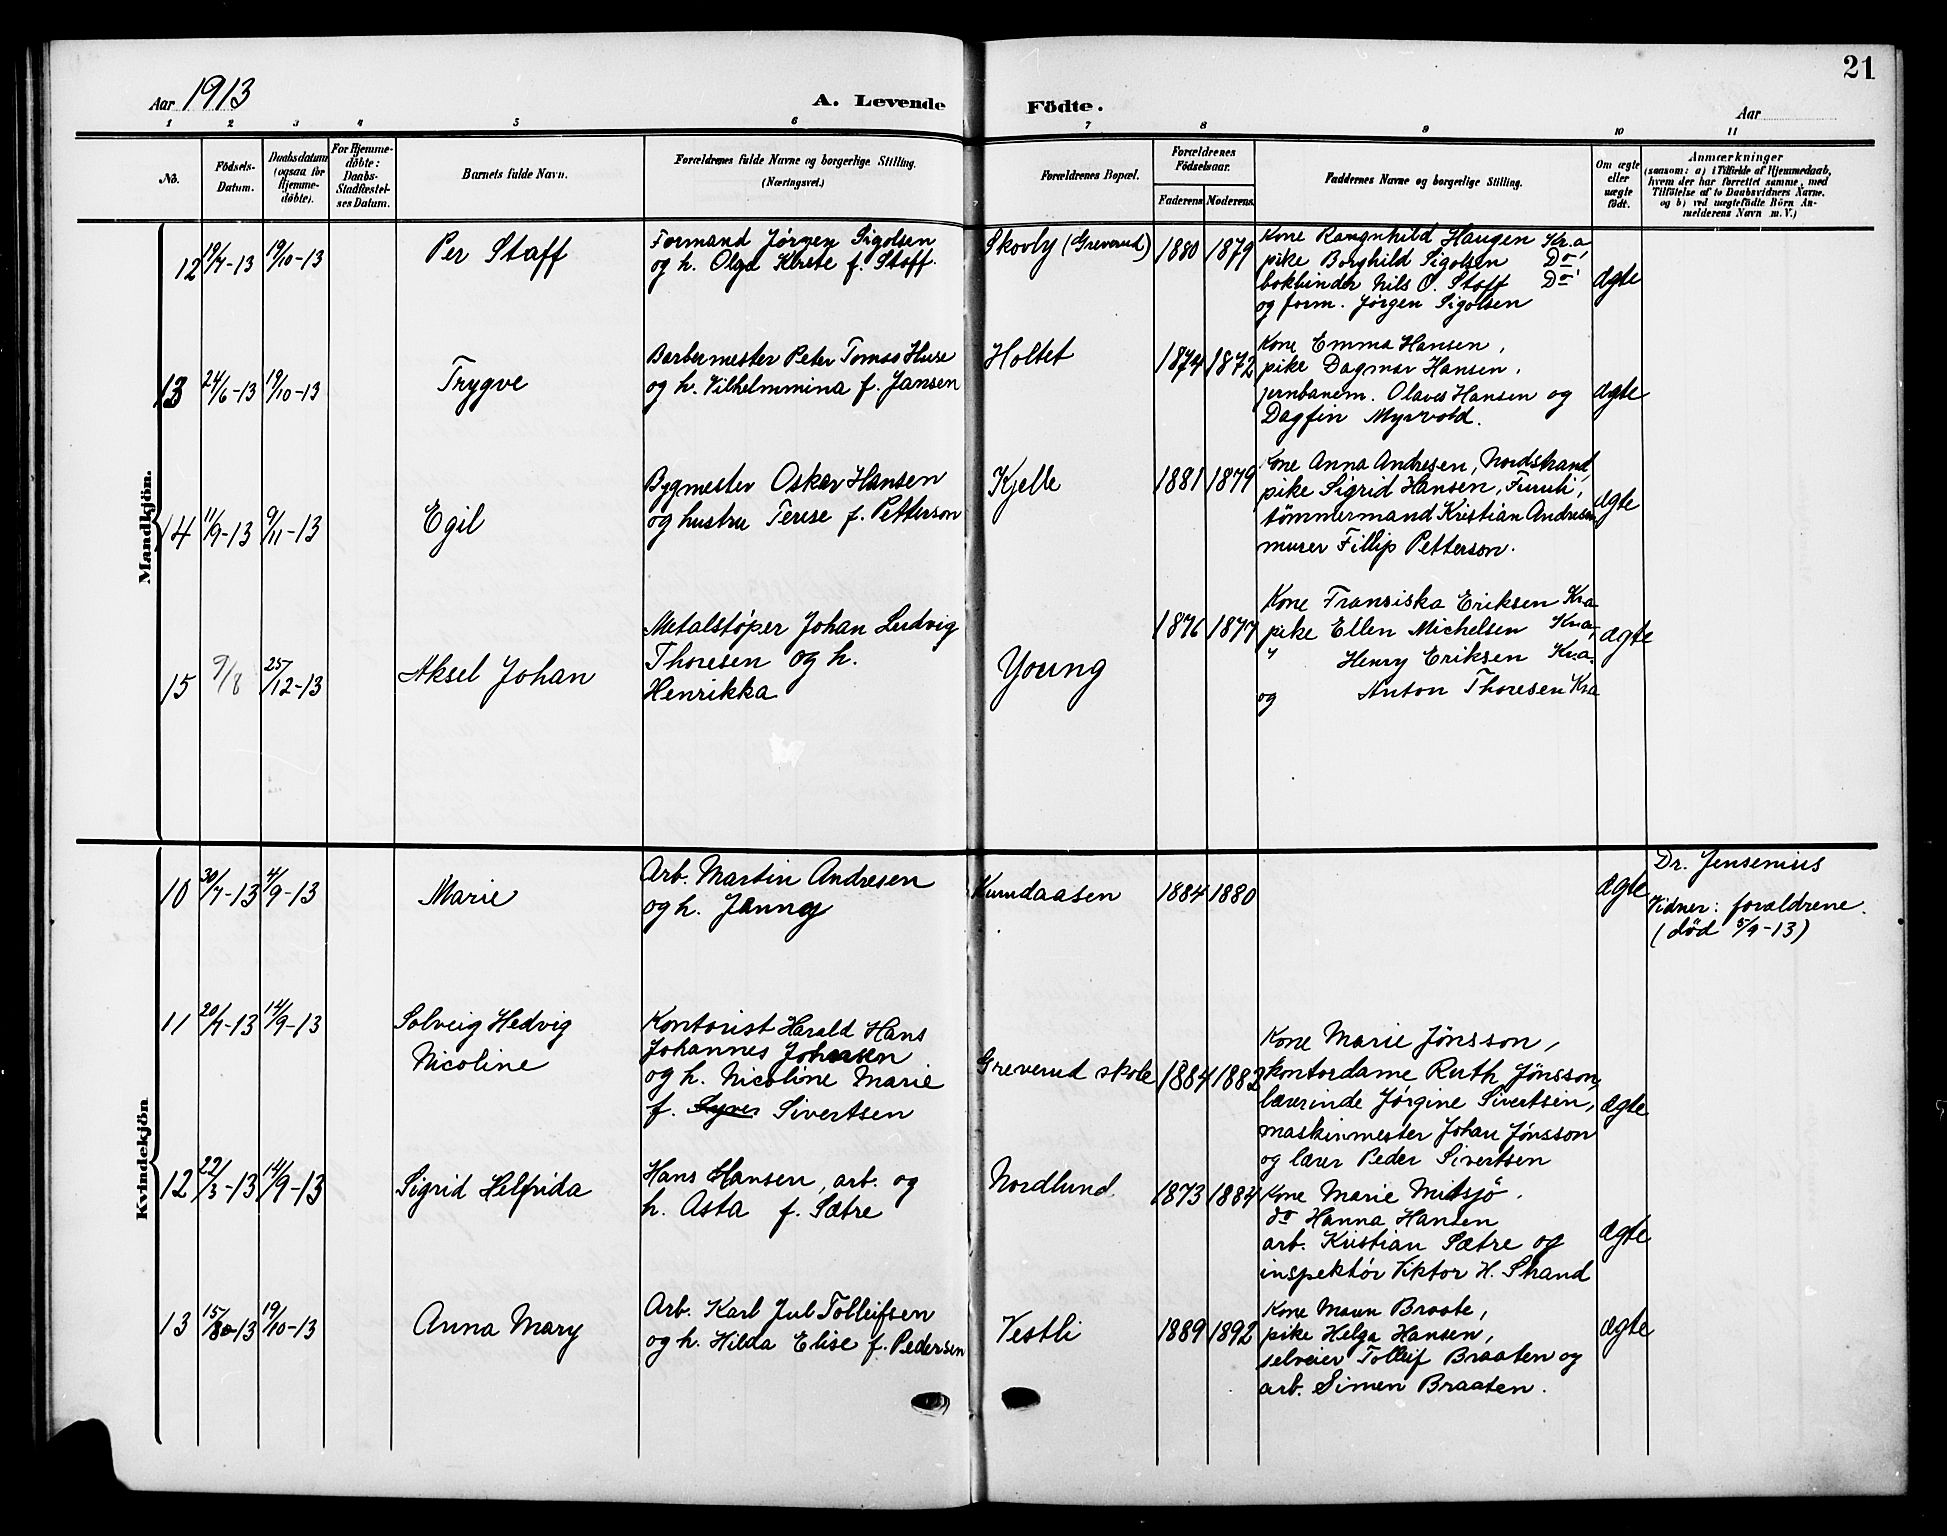 21
Aar 1913
A. Levende Födte.
Aar
1 2 3 4 5 6 7 8 9 10 11
No.
Födsels-Datum.
Daabsdatum (ogsaa för Hjemme-döbte).
For Hjemme-döbte: Daabs-Stadfæstel-ses Datum.
Barnets fulde Navn.
Forældrenes fulde Navne og borgerlige Stilling.
(Næringsvei.)
Forældrenes Bopæl.
Forældrenes Födselsaar.
Faderens. Moderens.
Faddernes Navne og borgerlige Stilling.
Om ægte eller uægte födt.
Anmærkninger
(saasom: a) i Tilfælde af Hjemmedaab,
hvem der har forrettet samme, med
Tilföielse af to Daabsvidners Navne.
og b) ved uægtefödte Börn An-
melderens Navn m. V.)
Mandkjön.
12 19/7-13 19/10-13 Per Staff
Formand Jørgen Sigolsen
og h. Olga Kirste f. Staff.
Skovly (Greverud) 1880 1879
Kone Rangnhild Haugen Kr.a
pike Borghild Sigolsen Do
bokbinder Nils O. Staff Do
og form. Jørgen Sigolsen
ægte
13 24/6-13 19/10-13 Trygve
Barbermester Peter Tomas Huse
og h. Vilhelmmina f. Jansen
Holtet 1874 1872
Kone Emma Hansen,
pike Dagmar Hansen,
jernbanem. Olaves Hansen og
Dagfin Myrvold.
ægte
14 11/9-13 9/11-13 Egil
Bygmester Oskar Hansen
og hustru Terese f. Petterson
Kjelle 1881 1879
Kone Anna Andresen, Nordstrand,
pike Sigrid Hansen, Furuli,
tömmermand Kristian Andresen
murer Fillip Petterson.
ægte
15 9/8 25/12-13 Aksel Johan
Metalstøper Johan Ludvig
Thoresen og h.
Henrikka
Young 1876 1877
Kone Fransiska Eriksen Kra
pike Ellen Michelsen Kr.a
" Henry Eriksen Kr.a.
og Anton Thoresen Kra
ægte
Kvindekjön
10 30/7-13 4/9-13 Marie
Arb. Martin Andresen
og h. Jenny
Kurudaasen 1884 1880
ægte
Dr. Jensenius
Vidner: forældrene.
(död 5/9-13)
11 20/7-13 14/9-13 Solveig Hedvig
Nicoline
Kontorist Harald Hans
Johannes Johnsen
og h. Nicoline Marie
f. Sivertsen
Greverud skole 1884 1882
Kone Marie Jönsson,
kontordame Ruth Jönsson,
lærerinde Jørgine Sivertsen,
maskinmester Johan Jönsson
og lærer Peder Sivertsen
ægte
12 22/3-13 14/9-13 Sigrid Helfrida
Hans Hansen, arb. og
h. Asta f. Sætre
Nordlund. 1873 1884
Kone Marie Mitsjö.
do Hanna Hansen
arb. Kristian Sætre og
inspektör Viktor H. Strand
ægte
13 15/8-13 19/10-13 Anna Mary
Arb. Karl Jul Tolleifsen
og h. Hilda Elise f. Pedersen
Vestli 1889 1892
Kone Maun Braate,
pike Helga Hansen,
selveier Tolleif Braaten og
arb. Simen Braaten.
ægte